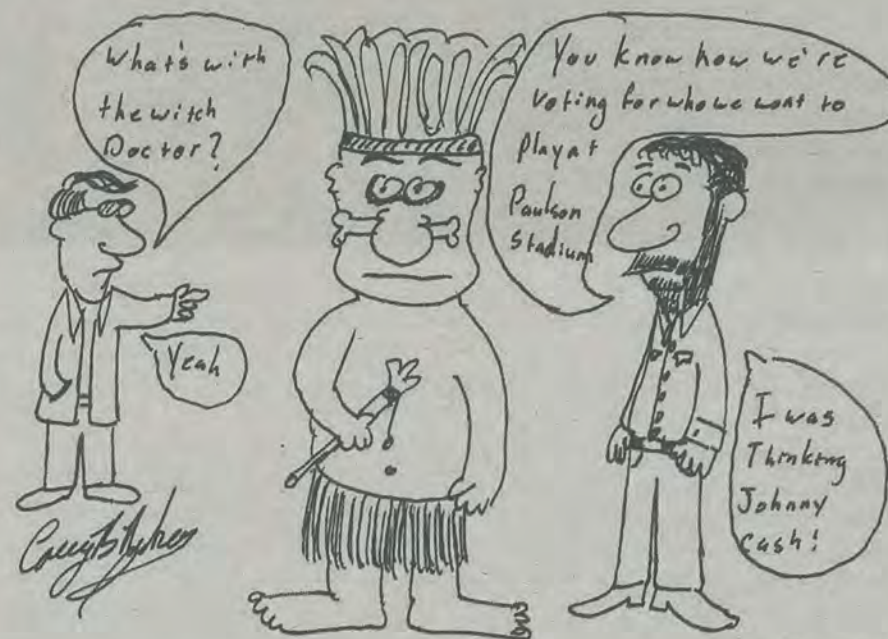 What's with
the witch
Doctor?
You know how we're
voting for who we want to
Play at
Paulson
Stadium
Yeah
I was
Thinking
Johnny
Cash!